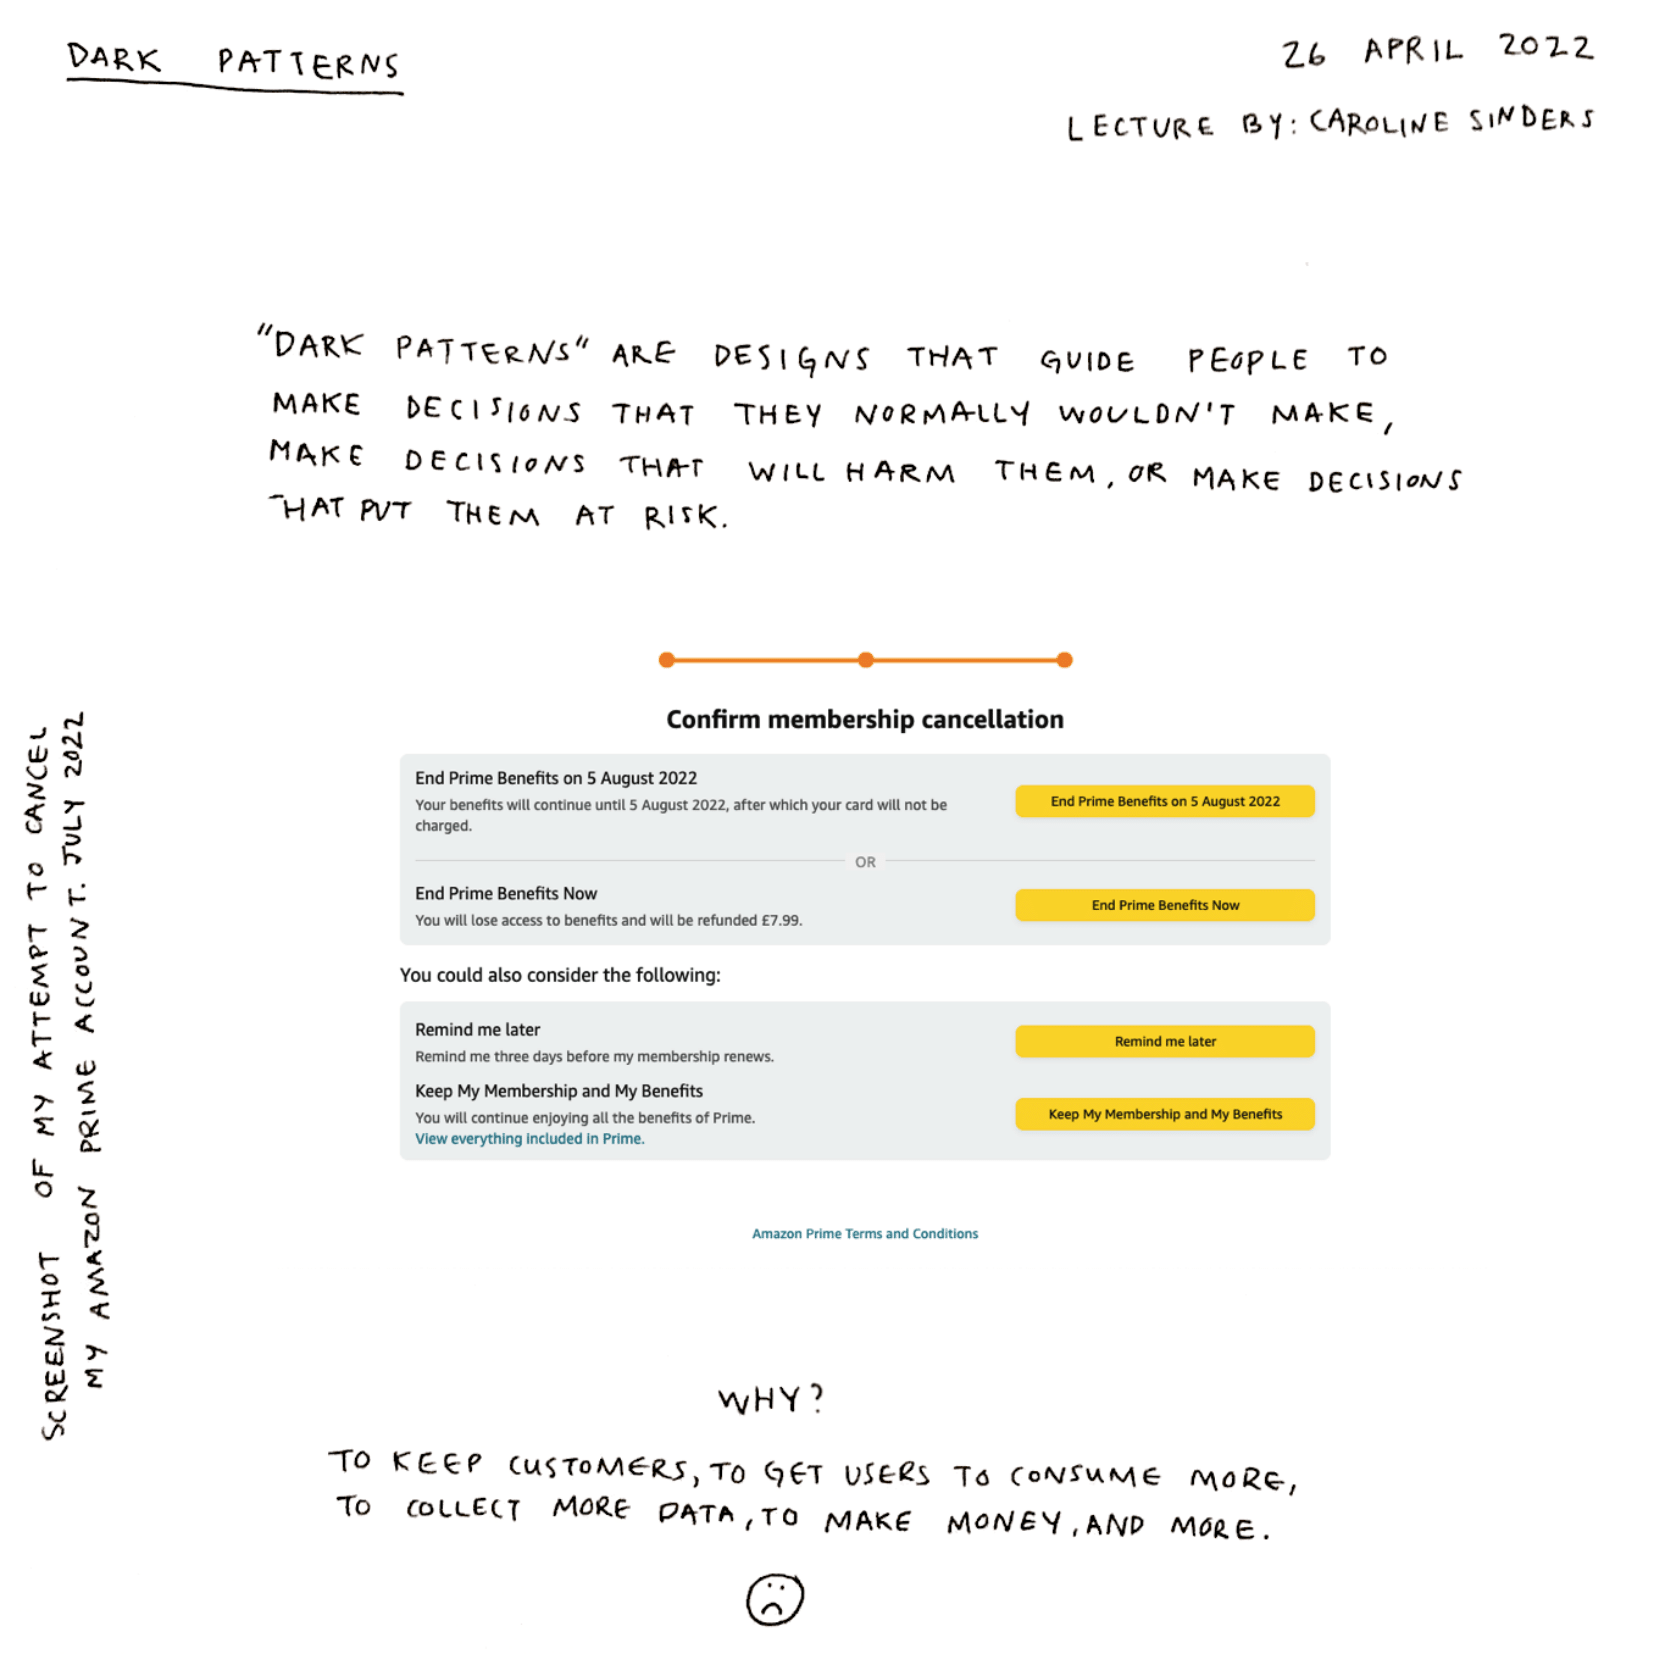 DARK PATTERNS
26 APRIL 2022
LECTURE BY: CAROLINE SINDERS
"DARK PATTERNS" ARE DESIGNS THAT GUIDE PEOPLE TO
MAKE DECISIONS THAT THEY NORMALLY WOULDN'T MAKE,
MAKE DECISIONS THAT WILL HARM THEM, OR MAKE DECISIONS
THAT PUT THEM AT RISK.
SCREENSHOT OF MY ATTEMPT TO CANCEL
MY AMAZON PRIME ACCOUNT. JULY 2022
Confirm membership cancellation
End Prime Benefits on 5 August 2022
Your benefits will continue until 5 August 2022, after which your card will not be
charged.
End Prime Benefits on 5 August 2022
OR
End Prime Benefits Now
You will lose access to benefits and will be refunded £7.99.
End Prime Benefits Now
You could also consider the following:
Remind me later
Remind me three days before my membership renews.
Remind me later
Keep My Membership and My Benefits
You will continue enjoying all the benefits of Prime.
View everything included in Prime.
Keep My Membership and My Benefits
Amazon Prime Terms and Conditions
WHY?
TO KEEP CUSTOMERS, TO GET USERS TO CONSUME MORE,
TO COLLECT MORE DATA, TO MAKE MONEY, AND MORE.